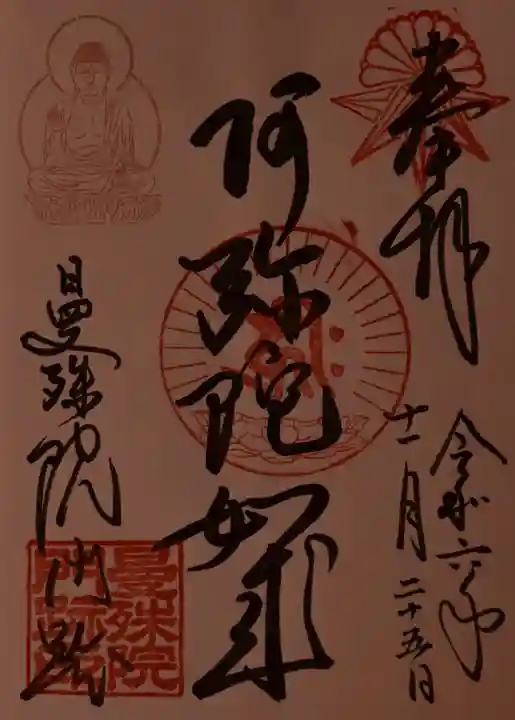 奉拝
令和六年
十一月二十五日
阿弥陀如来
曼殊院門跡
曼殊院
門跡印